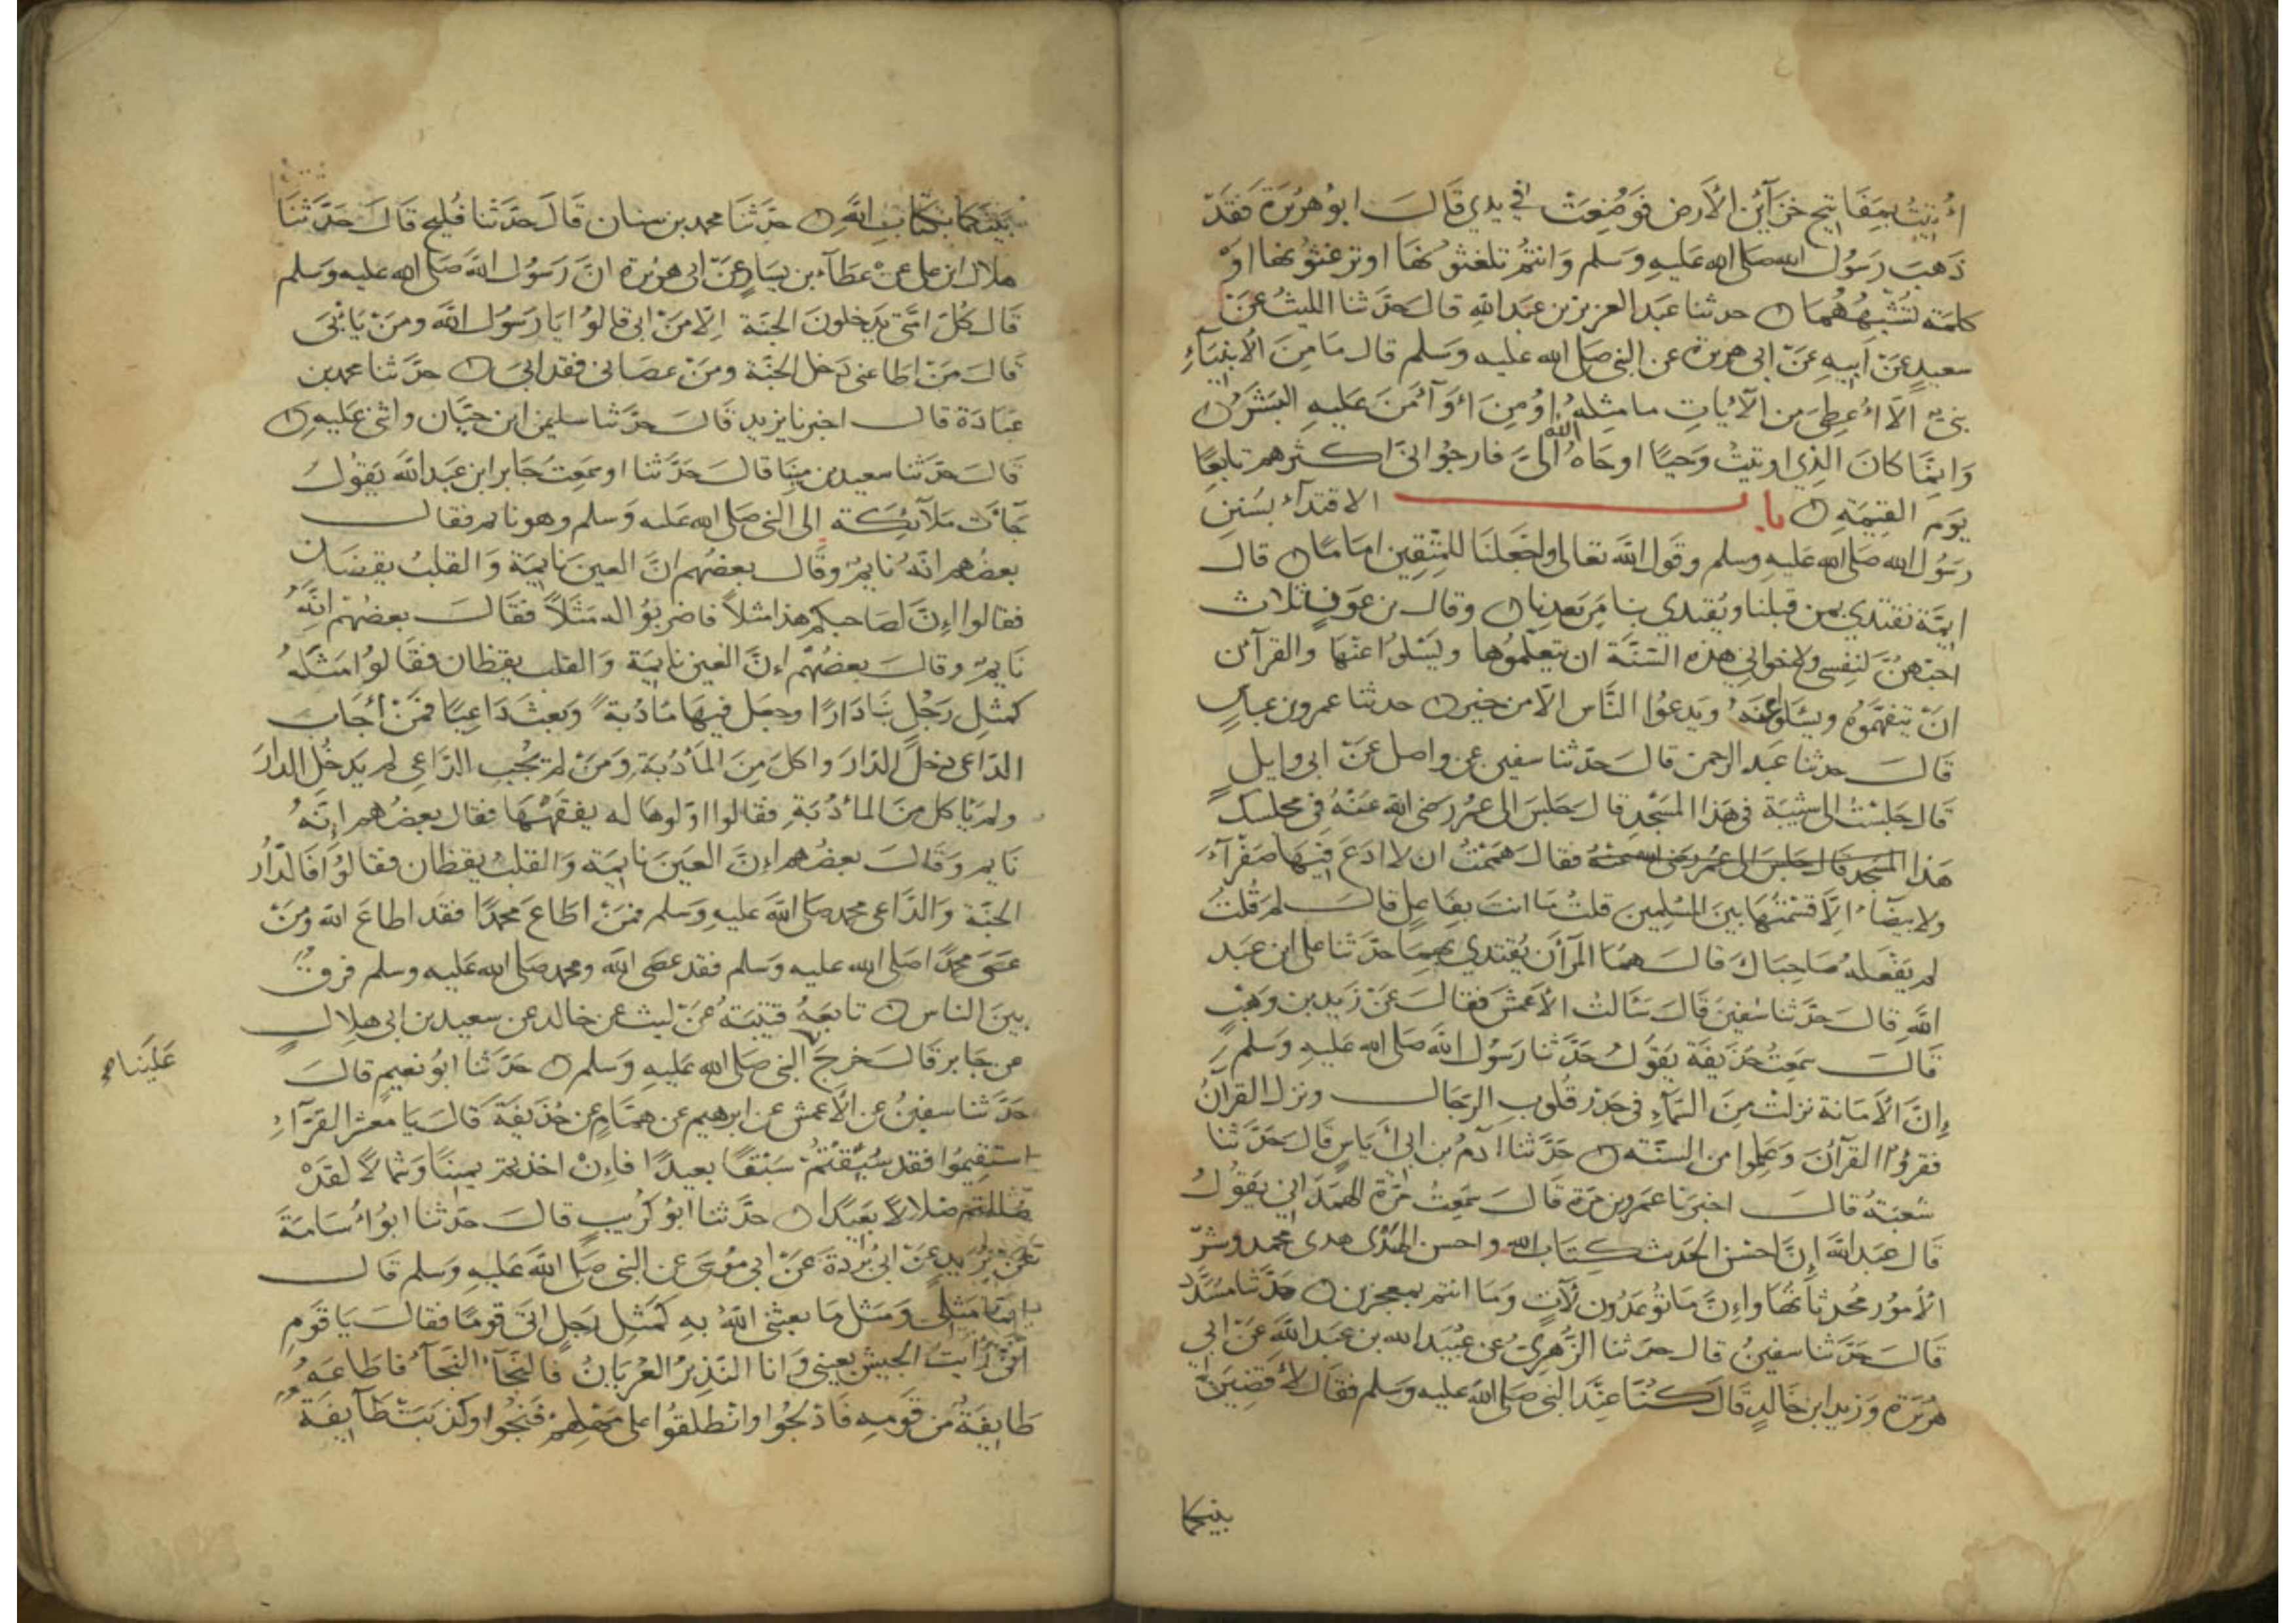 أُتِيتُ بِمَفَاتِيحِ خَزَآئِنِ الأَرضِ فَوُضِعَتْ في يدي قَالَ ابو هُرَيْرَةَ فَقَدْ
ذَهَبَ رَسُولُ الله صَلى الله عَليهِ وَسَلم وَانتُمْ تلغثونَهَا اوترغثونها اوْ
كلمَة تُشْبِهُهُمَا ۞ حدثنا عَبد العزيز بن عَبدالله قالَ حَدَّثنا الليثُ عَنْ
سعيدٍ عَنْ اَبيهِ عَنْ ابي هريرة عن النبي صَلى الله عليه وَسَلم قال مَا مِنَ الأنبيَآءِ
نبيٌّ الاَّ اُعطِيَ من الآيَاتِ ما مِثله اُومِنَ اوْ آمَنَ عَليهِ البَشَرُ ۞
وَانَّمَا كانَ الذِي اوتيتُ وَحيًا اوحَاهُ الله اليَّ فارجوا انى اكثرهم تابعًا
يَوم القيمَةِ ۞ باب الاقتدآء بسُنَنِ
رسُول الله صَلى الله عليهِ وسلم وقول الله تعالى واجْعَلنَا للمتَّقِين امَامًا ۞ قال
ايمَّة نقتدي بمن قبلنا ويَقتدي بنا مَن بَعدنا ۞ وقال بن عَوفٍ ثلاث
احبّهنَّ لنفسي ولاخواني هذه السّنَّة ان يتعلَّموُها ويَسْئلوا عَنْهَا والقرآن
انْ يتفهَّموُه ويسئلوا عنه وَيدعوُا النَّاس الاَّ من خيرٍ ۞ حدثنا عمرو بن عباسٍ
قَالَ حدثنا عَبد الرحمن قالَ حَدّثنا سفين عن واصل عَنْ ابي وايلٍ
قَالَ جَلسْتُ الى شيْبَة في هَذا المسْجدِ قال جَلَسَ الى عمر رَضى الله عَنْهُ في مجلسك
هَذا المسْجد قال جلسَ الى عُمر رَضى الله عَنْهُ فقالَ هَممْتُ ان لا ادَعَ فِيهَا صَفْرآءَ
ولا بيضَآءَ الاَّ قسَمْتُهَا بينَ المسْلِمينَ قلتُ مَا انتَ بفَاعِلٍ قالَ لمَ قُلتُ
لم يَفعَلهُ صَاحِبَاكَ قالَ همَا المرآن يُقتدي بهِمَا حدَّثنا على ابن عَبد
اللهِ قالَ حَدَّثنا سُفينَ قَالَ سَئَالتُ الأَعمَشَ فقالَ عَنْ زَيدِ بن وَهْبٍ
قَالَ سَمِعتُ حُذيفَة يَقوُلُ حَدَّثنا رَسُولُ الله صَلى الله عَليهِ وَسَلم
إنَّ الأَمَانة نزلتْ مِنَ السَّمآءِ في جَذرِ قُلوبِ الرّجَال ونزل القرآنُ
فقرؤا القرآنَ وَعَلِموا من السنَّة ۞ حَدَّثنا ادَمُ بن ابي أَيَاسٍ قَالَ حَدَّثنا
شعبَةُ قالَ اخبرَنا عَمرو بن مُرة قَالَ سَمِعتُ مُرَّة الهَمْدَاني يَقوُلُ
قَال عَبد الله إنَّ احسَنَ الحَديث كِتَاب الله واحسن الهَدْي هدى محمد وشرَّ
الأمُور محُدثاتُهَا وإنَّ مَا توُعَدُون لآتٍ وَمَا انتم بمعجزين ۞ حَدَّثنا مُسَدَّد
قَالَ حَدَّثنا سفينُ قال حدثنا الزُّهرِيُّ عن عُبَيد الله بن عَبد اللهِ عَنْ ابي
هُرَيْرَةَ وَزيد ابن خَالدٍ قَالَ كُنَّا عِنْدَ النبي صَلى الله عليه وسلم فقَالَ لأَقضِيَنَّ
بينكما
بَيْنَكمَا بكتَابِ اللهِ ۞ حدَّثنَا محمد بن سنان قالَ حدَّثنا فُليح قَالَ حَدَّثنَا
هلال ابن على عَنْ عَطَآء بن يسَارٍ عَنْ ابى هريرة انَّ رَسُول الله صَلى الله عليه وَسَلم
قَال كُلُّ امَّتى يَدخلونَ الجنَّة اِلاَّ مَنْ ابي قالوُا يَا رَسُول الله ومَنْ يَابْىَ
قَالَ مَنْ اطَاعني دَخل الجنَّة ومَنْ عصَاني فقد ابىَ ۞ حدَّثنا محمد بن
عبَادَة قال اخبرنا يزيد قَالَ حَدَّثنا سليمن ابن حيَّان واثنى عَليهِ ۞
قَالَ حَدّثنا سعيد بن مينَا قالَ حَدَّثنا او سَمِعتُ جَابر ابن عَبدالله يَقوُل
جَآءت مَلآئِكَة الى النبى صَلى الله عَليه وَسَلم وهو نايم فقال
بعضُهم انَّهُ نايمٌ وقَال بعضُهم انَّ العينَ نَايمَة وَالقلبُ يقضَان
فقالوا إنَّ لصَاحبكم هذا مثلاً فاضربوُا له مَثَلاً فقَالَ بعضُهُمْ انَّهُ
نَايمٌ وقالَ بعضُهُمْ إنَّ العين نايمَة وَالقلب يقظان فقَالوُا مَثلهُ
كمثلِ رَجُلٍ بَنَا دَارًا وجعل فِيهَا مَأدُبة وَبعثَ دَاعِيًا فَمَنْ أجَاب
الدّاعى دخلَ الدّارَ واكلَ مِنَ المَأدُبَةِ وَمَنْ لم يُجْبِ الدَّاعِي لم يَدخُل الدارَ
ولم يَأكل منَ المأدُبَةِ فقالوا اوّلوهَا له يفقهْهَا فقال بعضُهم إنَّهُ
نَايم وَقَالَ بعضُهم إنَّ العَينَ نايمَة وَالقلبُ يقظان فقالوُا فَالدّارُ
الجنَّة وَالدَّاعى محمد صَلى الله عليهِ وَسَلم فمَنْ اطَاعَ محَمدًا فقد اطاعَ الله وَمَنْ
عَصَى محمَّدًا صَلى الله عليه وَسَلم فقد عصَى الله ومحمد صَلى الله عَليه وسلم فرقٌ
بينَ الناس ۞ تابعَهُ قتيبَة عَنْ ليث عن خالد عن سعيد بن ابي هِلالٍ
عن جَابر قَالَ خرجَ النبى صَلى الله عَليهِ وَسَلم ۞ حَدّثنا ابوُ نعيمٍ قالَ
عَلَيْنَا صح
حَدَّثنا سفينُ عن الأعمش عن ابرهيم عن همَّامٍ عن حُذَيفَة قَالَ يَا معشر القرَّآءِ
استقِيموُا فقد سُبِقْتُمْ سَبْقًا بعيدًا فاِنْ اخذتم يمينًا وَشمَالاً لقدْ
ضَلَلتم ضلالاً بَعيدًا ۞ حدَّثنا ابوُ كُرَيبٍ قالَ حَدّثنا ابوُ اُسَامَةَ
عَنْ بُرَيدٍ عَنْ ابى بُردَة عَنْ ابي موُسَى عن النبى صَلى الله عَليهِ وَسَلم قَال
انَّمَا مَثَلي وَمَثل مَا بعثنى اللهُ بِهِ كَمَثلِ رَجلٍ اتى قومًا فقالَ يَا قَومِ
انّي رَايتُ الجيش بعيني وَانا النّذيرُ العُرْيَانُ فالنجَآءَ النّجَآءَ فاطَاعَهُ
طَايِفَة من قَومِهِ فَادْلجُوا وانْطلقوُا على مَهَلِهِمْ فنَجَوا وكذّبَتْ طَآيِفَة